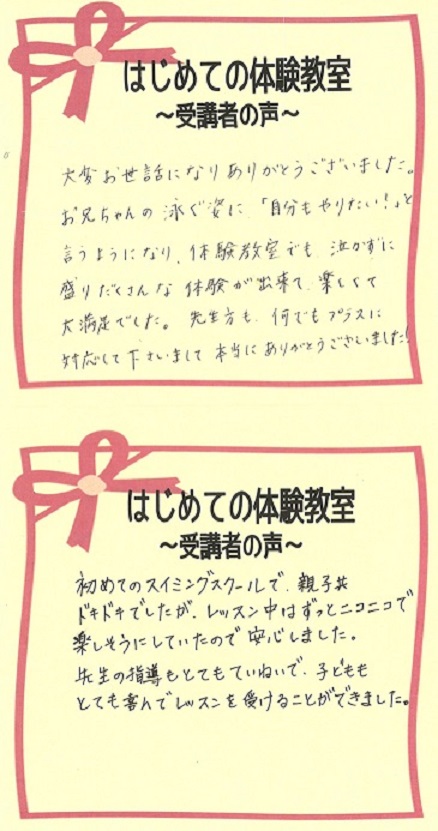 はじめての体験教室
～受講者の声～
大変お世話になりありがとうございました。
お兄ちゃんの泳ぐ姿に、「自分もやりたい！」と
言うようになり、体験教室でも、泣かずに
盛りだくさんな体験が出来て、楽しくて
大満足でした。先生方も、何でもプラスに
対応して下さいまして本当にありがとうございました!
はじめての体験教室
～受講者の声～
初めてのスイミングスクールで、親子共
ドキドキでしたが、レッスン中はずっとニコニコで
楽しそうにしていたので安心しました。
先生の指導もとてもていねいで、子どもも
とても喜んでレッスンを受けることができました。